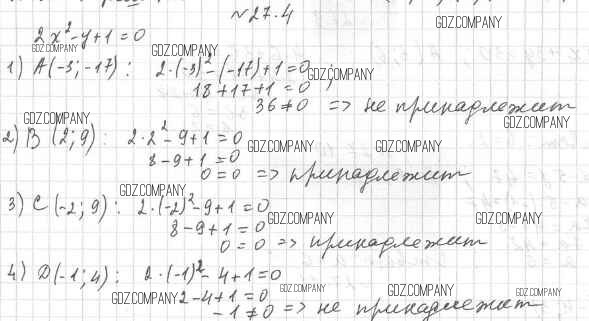 №27.4
GDZ.COMPANY
2x²-y+1=0
GDZ.COMPANY
GDZ.COMPANY
1) A(-3; -17): 2·(-3)²-(-17)+1=0;
GDZ.COMPANY
18+17+1=0
36≠0 => не принадлежит
GDZ.COMPANY
GDZ.COMPANY
2) B (2; 9): 2·2²-9+1=0
GDZ.COMPANY
GDZ.COMPANY
8-9+1=0
0=0 => принадлежит
GDZ.COMPANY
3) C (-2; 9): 2·(-2)²-9+1=0
GDZ.COMPANY
GDZ.COMPANY
8-9+1=0
0=0 => принадлежит
4) D(-1; 4): 2·(-1)²-4+1=0
GDZ.COMPANY
GDZ.COMPANY
GDZ.COMPANY
2-4+1=0
-1≠0 => не принадлежит